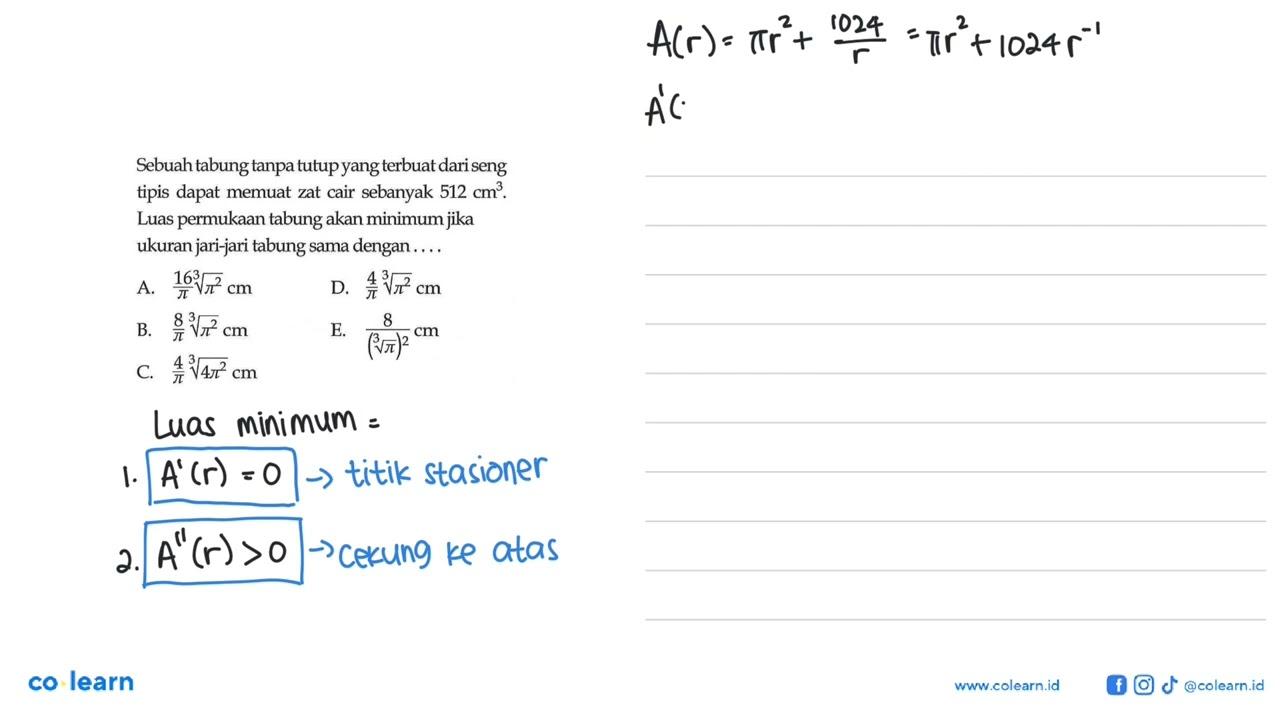 A(r) = πr² + 1024/r = πr² + 1024 r⁻¹
A'(
Sebuah tabung tanpa tutup yang terbuat dari seng
tipis dapat memuat zat cair sebanyak 512 cm³.
Luas permukaan tabung akan minimum jika
ukuran jari-jari tabung sama dengan . . . .
A. 16/π ∛π² cm
B. 8/π ∛π² cm
C. 4/π ∛4π² cm
D. 4/π ∛π² cm
E. 8/(∛π)² cm
Luas minimum =
1. A'(r) = 0 → titik stasioner
2. A''(r) > 0 → cekung ke atas
co·learn
www.colearn.id @colearn.id